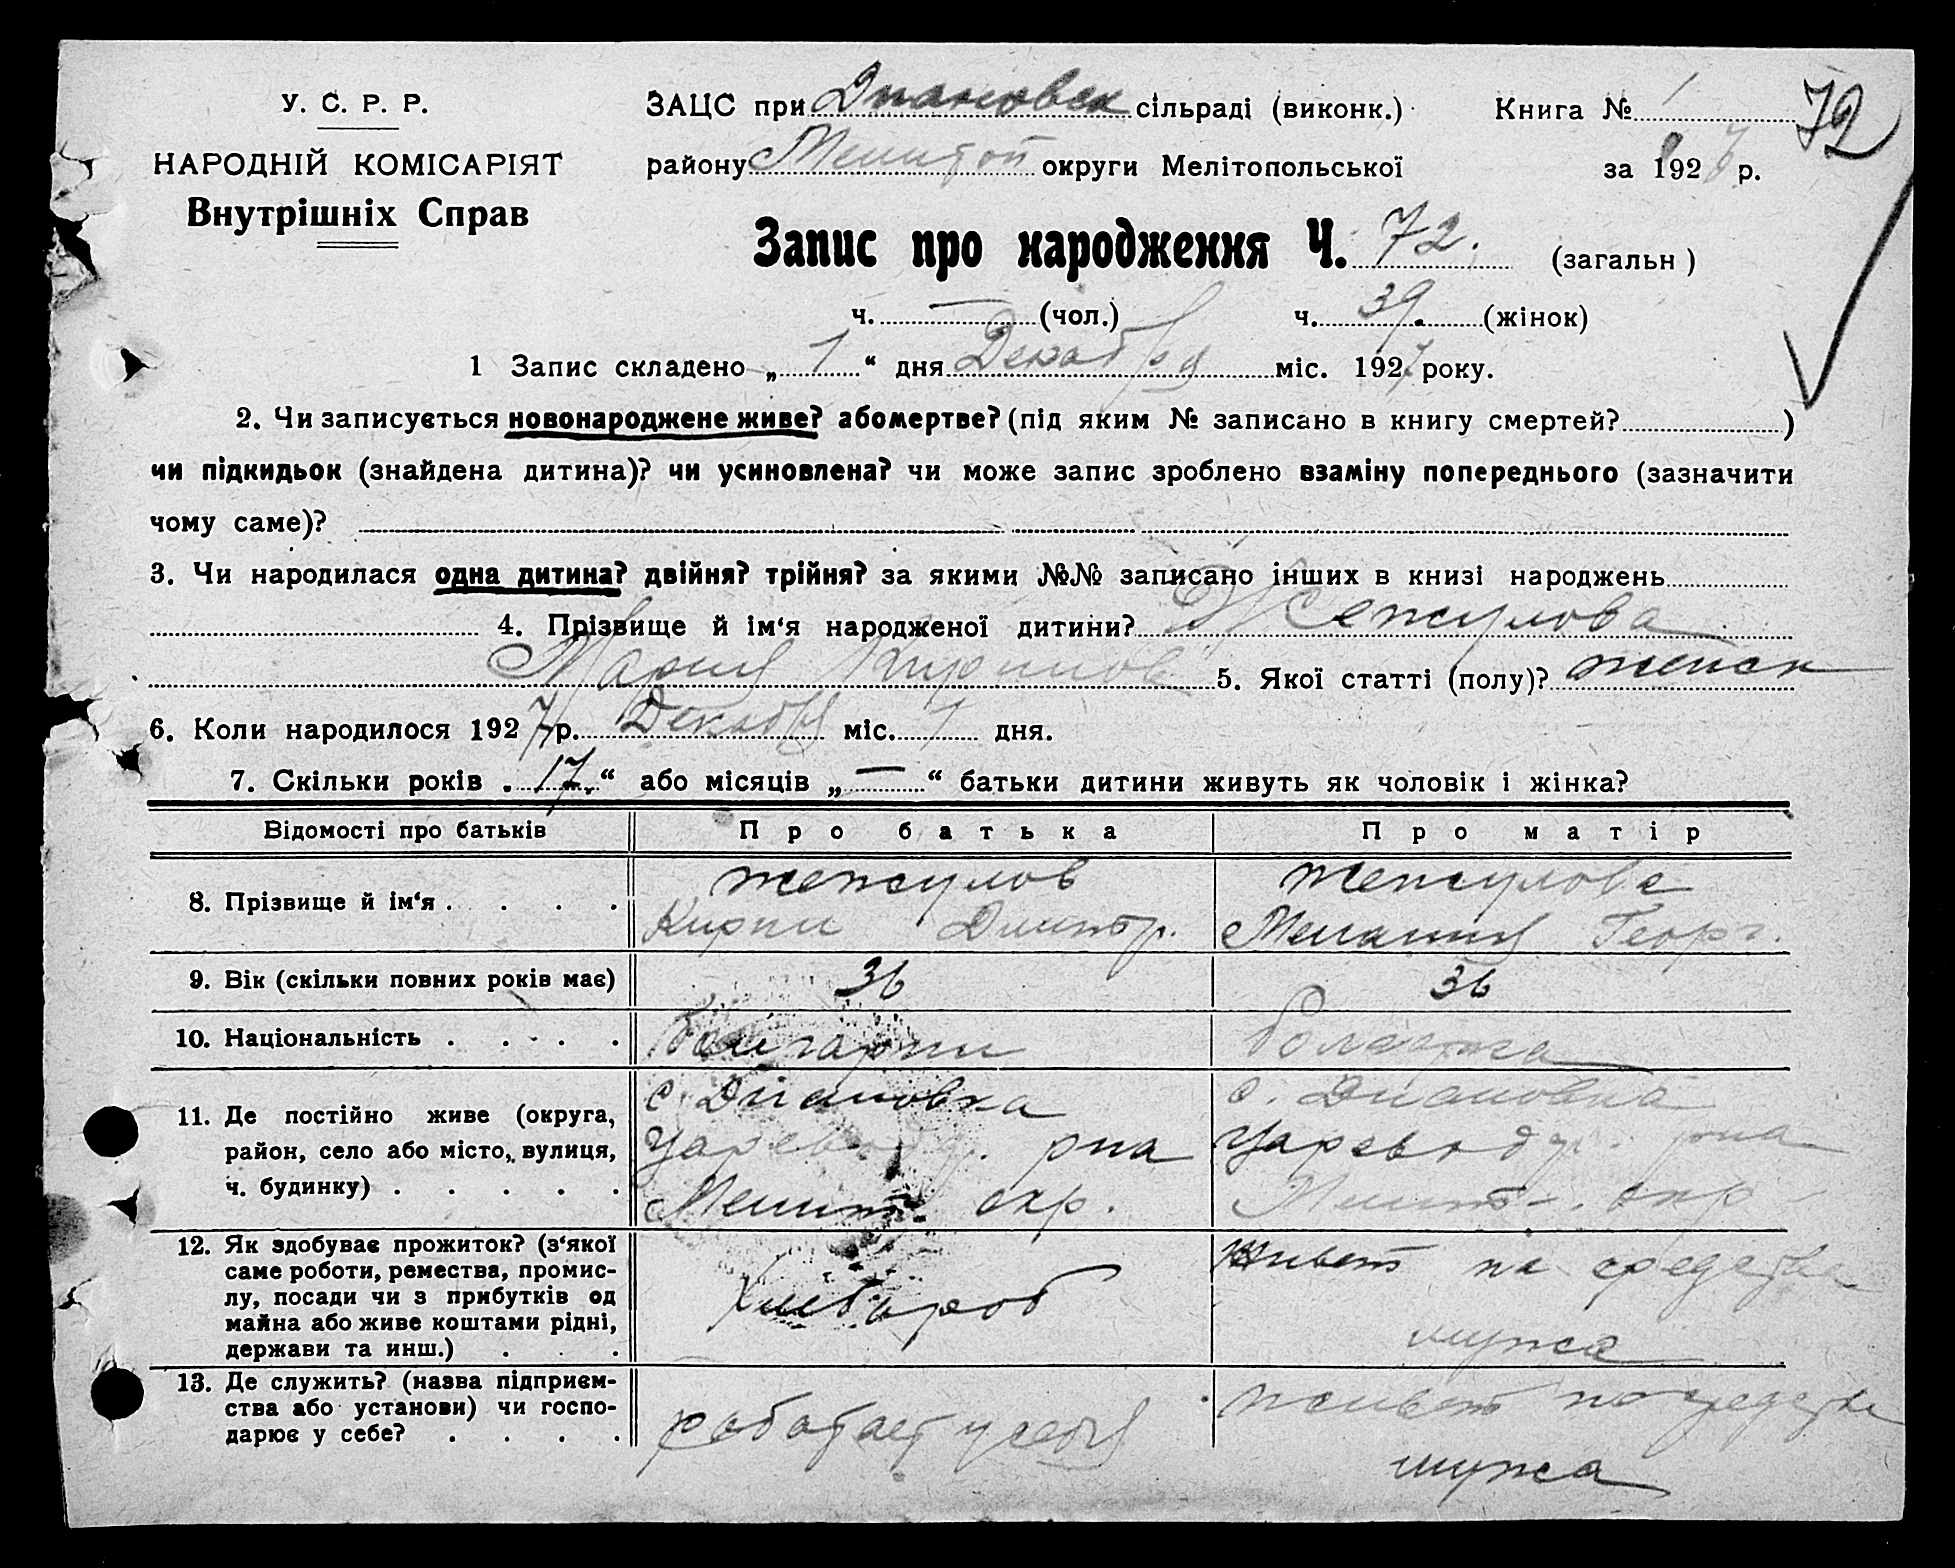 У. С. Р. Р.
НАРОДНІЙ КОМІСАРІЯТ
Внутрішніх Справ
ЗАЦС при Диановск сільраді (виконк.) Книга № 1 72
району Мелитоп округи Мелітопольської за 1927 р.
Запис про народження Ч. 72. (загальн)
ч. — (чол.) ч. 39. (жінок)
1 Запис складено „ 1 “ дня Декабря міс. 1927 року.
2. Чи записується новонароджене живе? або мертве? (під яким № записано в книгу смертей? )
чи підкидьок (знайдена дитина)? чи усиновлена? чи може запис зроблено взаміну попереднього (зазначити
чому саме)?
3. Чи народилася одна дитина? двійня? трійня? за якими №№ записано інших в книзі народжень
4. Прізвище й ім‘я народженої дитини? Жежулова
Мария Кирилов 5. Якої статті (полу)? женск
6. Коли народилося 1927 р. Декабря міс. 1 дня.
7. Скільки років „ 17 “ або місяців „ — “ батьки дитини живуть як чоловік і жінка?
Відомості про батьків Про батька Про матір
8. Прізвище й ім‘я . . . . Жежулов Жежулова
Кирил Дмитр. Мелания Георг.
9. Вік (скільки повних років має) 36 36
10. Національність . . . . болгарин болгарка
11. Де постійно живе (округа, с. Диановка с. Диановка
район, село або місто, вулиця, Царевод. рна Цареводр. рна
ч. будинку) . . . . . Мелит. окр. Мелит. окр
12. Як здобуває прожиток? (з‘якої
саме роботи, ремества, промис-
лу, посади чи з прибутків од
майна або живе коштами рідні,
держави та инш.) . . .
Хлебороб
живет на средства
мужа
13. Де служить? (назва підприєм-
ства або установи) чи госпо-
дарює у себе? . . . .
работает у себя
живет на средства
мужа